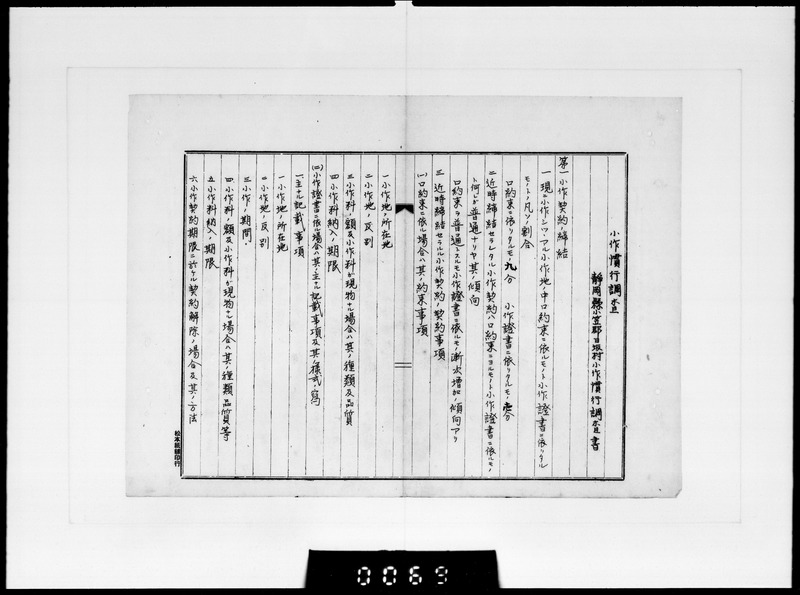 小作慣行調査
静岡縣小笠郡日坂村小作慣行調査書
第一 小作契約ノ締結
一 現ニ小作シツヽアル小作地ノ中口約束ニ依ルモノト小作證書ニ依リタル
モノトノ凡ソノ割合
口約束ニ依リタルモノ 九分 小作證書ニ依リタルモノ 壱分
二 近時締結セラレタル小作契約ハ口約束ニヨルモノト小作證書ニ依ルモノ
ト何レガ普通ナリヤ其ノ傾向
口約束ヲ普通トスルモ小作證書ニ依ルモノ漸次増加ノ傾向アリ
三 近時締結セラルル小作契約ノ契約事項
(一)口約束ニ依ル場合ハ其ノ約束事項
一 小作地ノ所在地
二 小作地ノ反別
三 小作料ノ額及小作料ガ現物ナル場合ハ其ノ種類及品質
四 小作料納入ノ期限
(二)小作證書ニ依ル場合ハ其ノ主ナル記載事項及其ノ様式ノ寫
一、主ナル記載事項
一 小作地ノ所在地
二 小作地ノ反別
三 小作ノ期間
四 小作料ノ額及小作料ガ現物ナル場合ハ其ノ種類品質等
五 小作料納入ノ期限
六 小作契約期限ニ於ケル契約解除ノ場合及其ノ方法
松本紙舗印行
0069